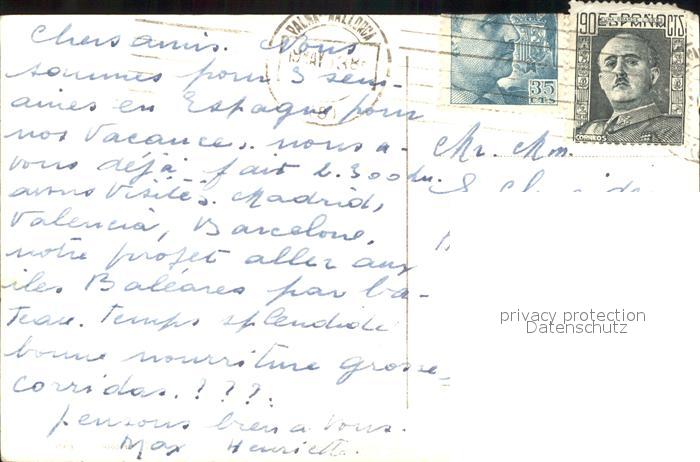 Chers amis. Nous
sommes pour 3 sem-
aines en Espagne pour
nos vacances. nous a-
vons déjà fait 2.300 km.
avons visités. Madrid,
Valencia, Barcelone,
notre projet aller aux
iles Baléares par ba-
teau. temps splendide
bonne nourriture grosse
corridas. ? ? ?.
pensons bien a vous.
Max Henriette.
PALMA MALLORCA
35
CTS
90 ESPAÑA CTS
CORREOS
Mr. Mm.
privacy protection
Datenschutz